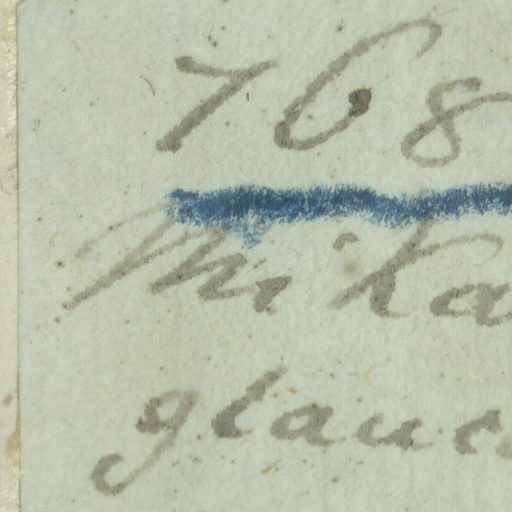 768
Mika
glauc